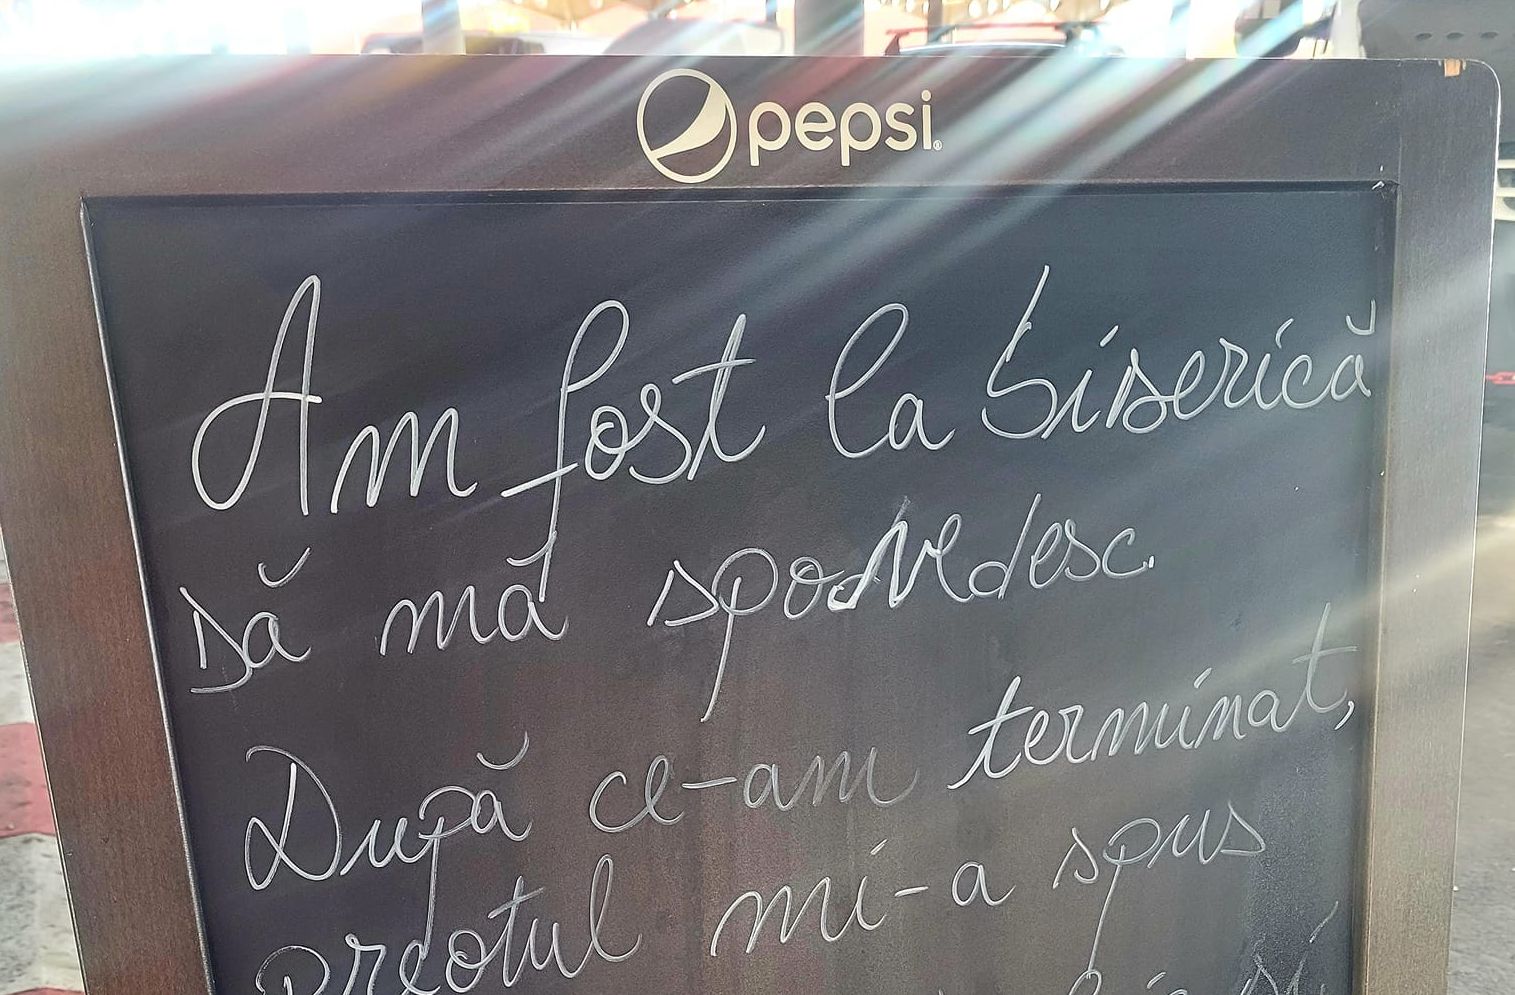 pepsi
Am fost la biserică
să mă spovedesc.
După ce-am terminat,
preotul mi-a spus
și